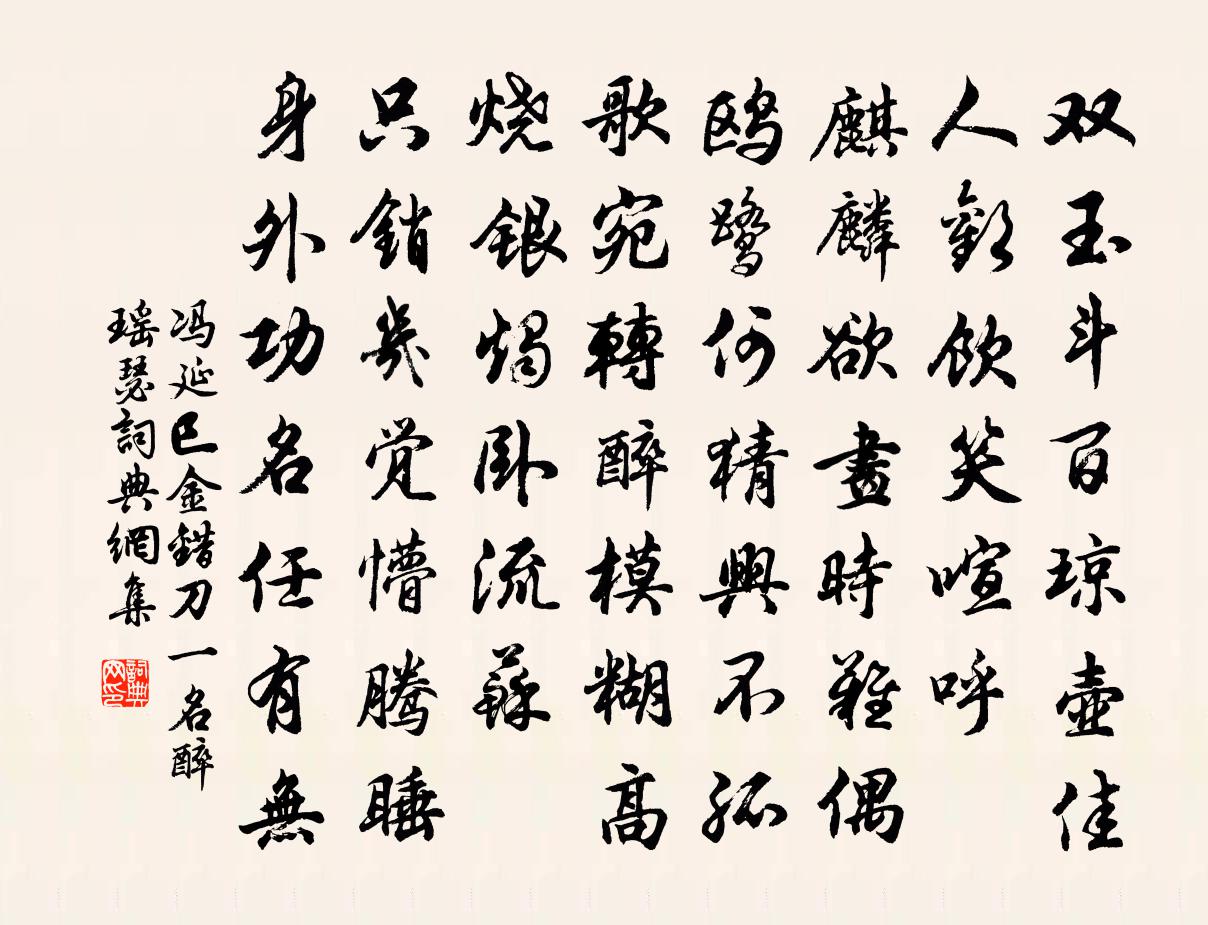 双玉斗百琼壶佳
人歡飲笑喧呼
麒麟欲畫時難偶
鸥鹭何猜興不孤
歌宛轉醉模糊高
烧银烛卧流蘇
只銷幾觉懵腾睡
身外功名任有無
冯延巳金錯刀一名醉
瑶瑟詞典網集
詞典
网印